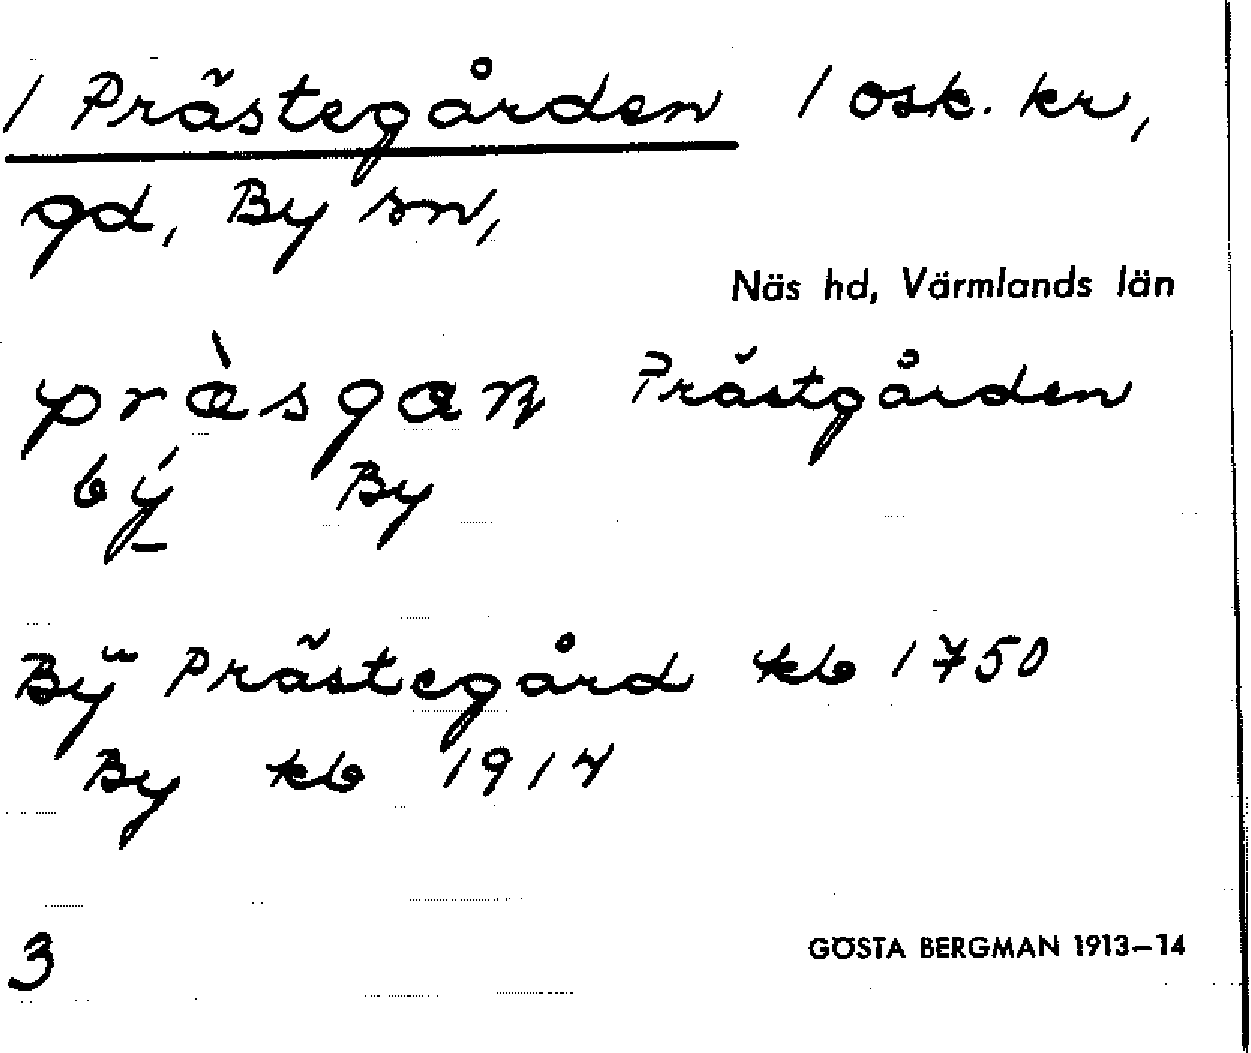 1 Prästegården 1 osk. kr,
gd, By sn,
Näs hd, Värmlands län
præ̀sgan Prästgården
bý By
Bÿ Prästegård kb 1750
By kb 1914
3 GÖSTA BERGMAN 1913–14